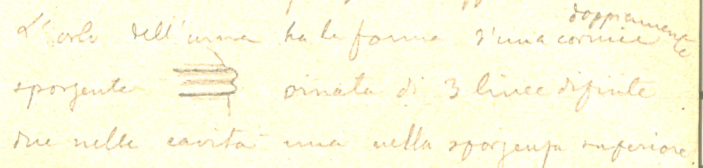 L'orlo dell'urna ha la forma d'una cornice doppiamente
sporgente ornata di 3 linee dipinte
due nelle cavità una nella sporgenza superiore